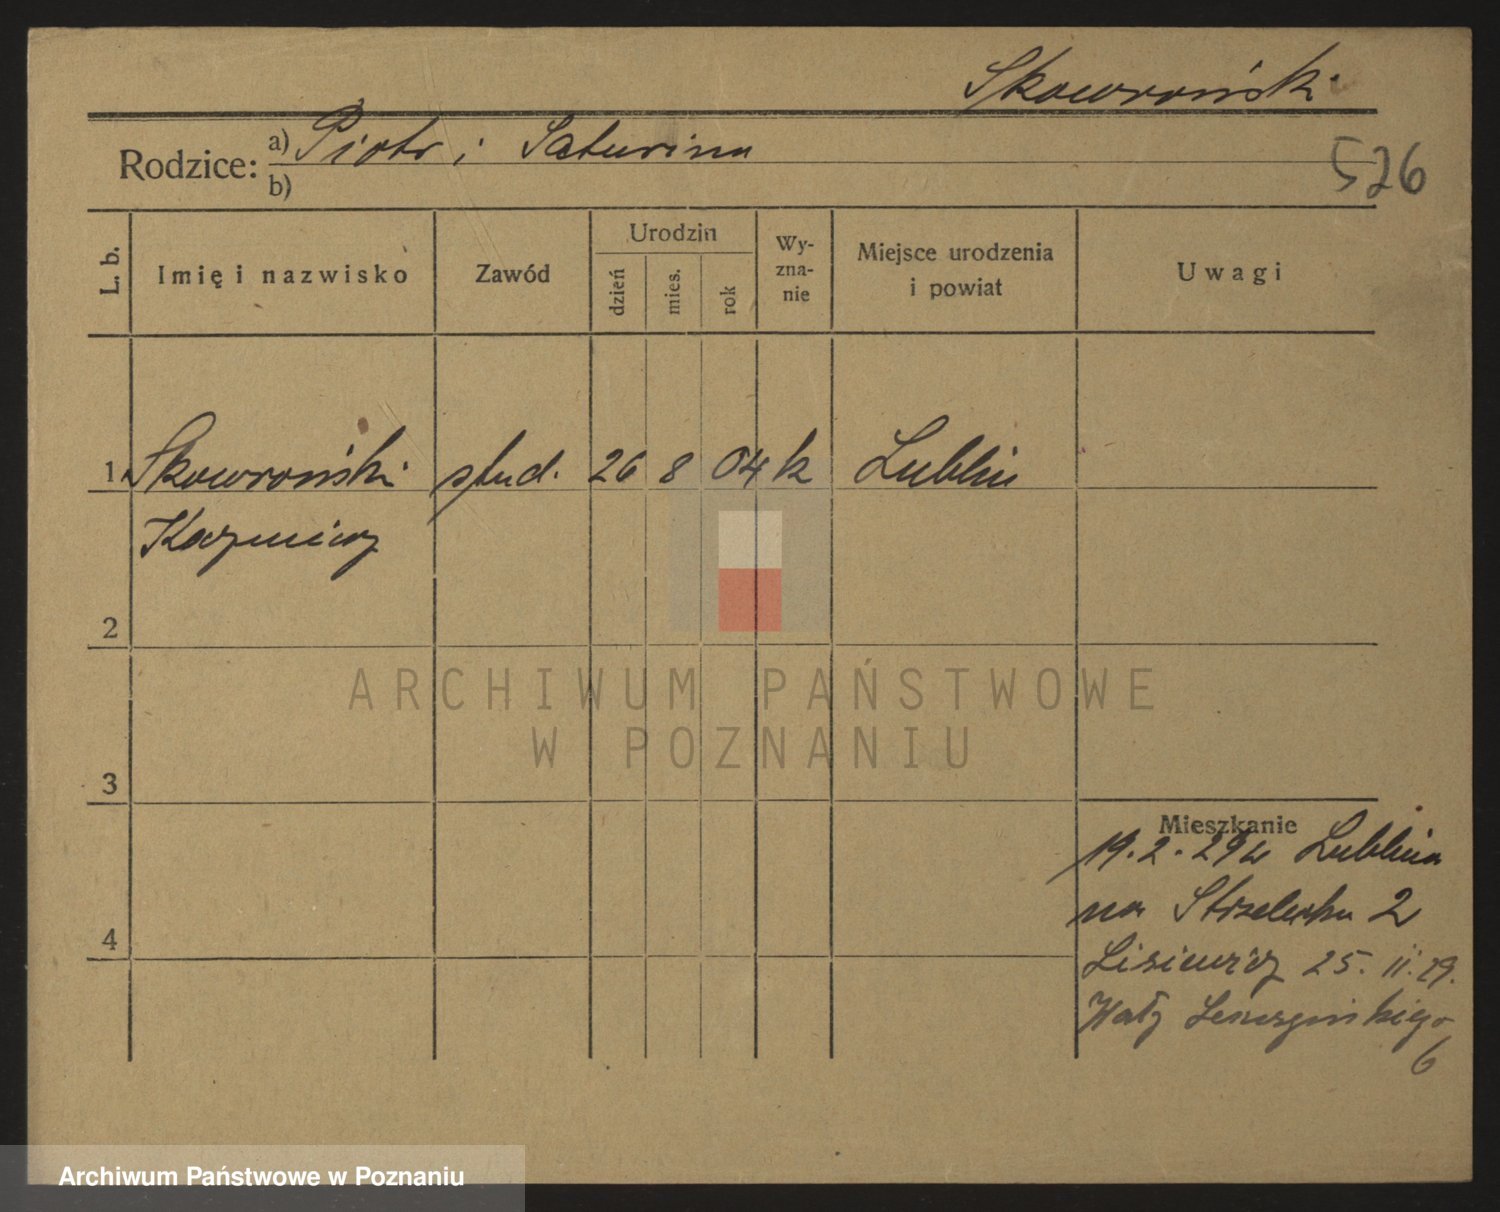 Skowroński
Rodzice: a) Piotr i Saturina
b)
526
L. b. Imię i nazwisko Zawód Urodzin dzień mies. rok Wy-zna-nie Miejsce urodzenia i powiat Uwagi
1 Skowroński stud. 26 8 04 k Lublin
Kazimierz
2
3
4
Mieszkanie
19.2.29 z Lublina
na Strzelecka 2
Lisiewicz 25. II. 29.
Wały Leszczyńskiego
6
ARCHIWUM PAŃSTWOWE
W POZNANIU
Archiwum Państwowe w Poznaniu